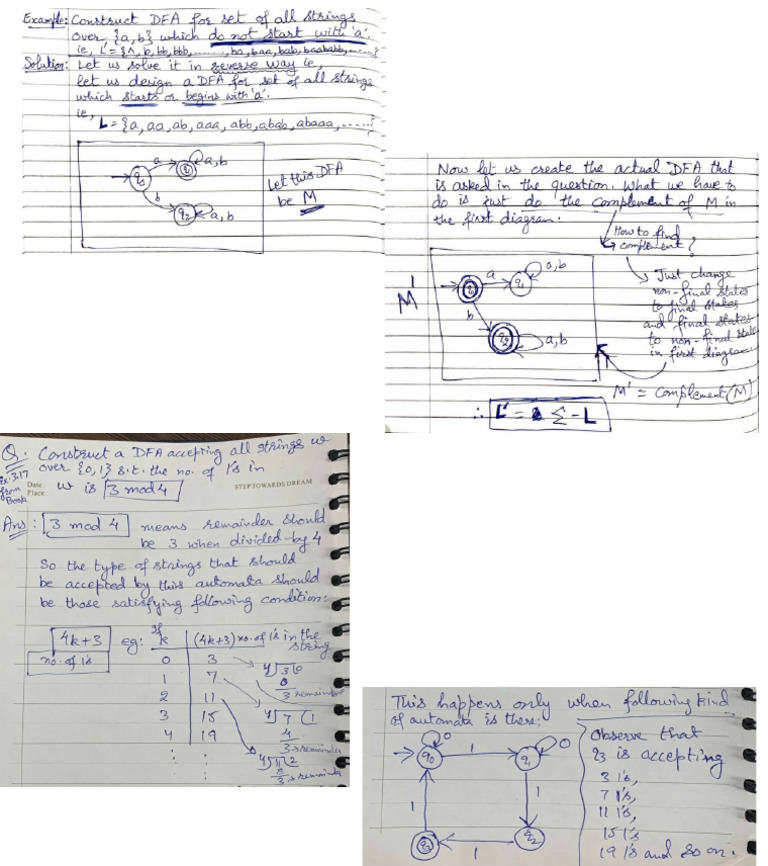 Example: Construct DFA for set of all strings
over {a, b} which do not start with 'a'.
ie, L' = {Λ, b, bb, bbb, ......., ba, baa, bab, baababb, ......}
Solution: Let us solve it in reverse way ie,
let us design a DFA for set of all strings
which starts or begins with 'a'.
ie,
L = {a, aa, ab, aaa, abb, abab, abaaa, ......}
a
a, b
q0
q1
b
q2
a, b
Let this DFA
be M
Now let us create the actual DFA that
is asked in the question. What we have to
do is just do the complement of M in
the first diagram.
How to find
complement?
M'
a
a, b
q0
q1
b
q2
a, b
Just change
non-final states
to final states
and final states
to non-final state
in first diagram.
M' = Complement(M)
∴ L' = Σ - L
Q. Construct a DFA accepting all strings w
over {0, 1} s.t. the no. of 1's in
w is 3 mod 4
Ex: 3.17
from
Book
Date:
Place:
STEP TOWARDS DREAM
Ans: 3 mod 4 means remainder should
be 3 when divided by 4
So the type of strings that should
be accepted by this automata should
be those satisfying following condition:
4k+3
no. of 1's
eg: If
k (4k+3) no. of 1's in the
string
0 3
1 7
2 11
3 15
4 19
4 ) 3 ( 0
0
3 remainder
4 ) 7 ( 1
4
3 is remainder
4 ) 11 ( 2
8
3 is remainder
This happens only when following kind
of automata is there:
0
0
q0
1
q1
1
1
q3
1
q2
Observe that
q3 is accepting
3 1's,
7 1's,
11 1's,
15 1's
19 1's and so on.